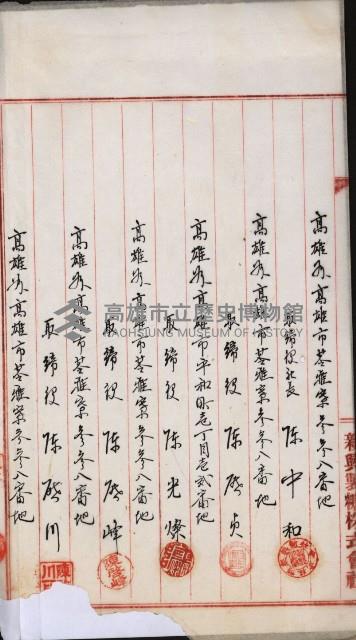 高雄州高雄市苓雅寮參參八番地
取締役社長 陳中和
高雄州高雄市苓雅寮參參八番地
取締役 陳啓貞
高雄州高雄市平和町壱丁目壱貳番地
取締役 陳光燦
高雄州高雄市苓雅寮參參八番地
取締役 陳啓峰
高雄州高雄市苓雅寮參參八番地
取締役 陳啓川
高雄州高雄市苓雅寮參參八番地
新興製糖株式會社
高雄市立歷史博物館
KAOHSIUNG MUSEUM OF HISTORY